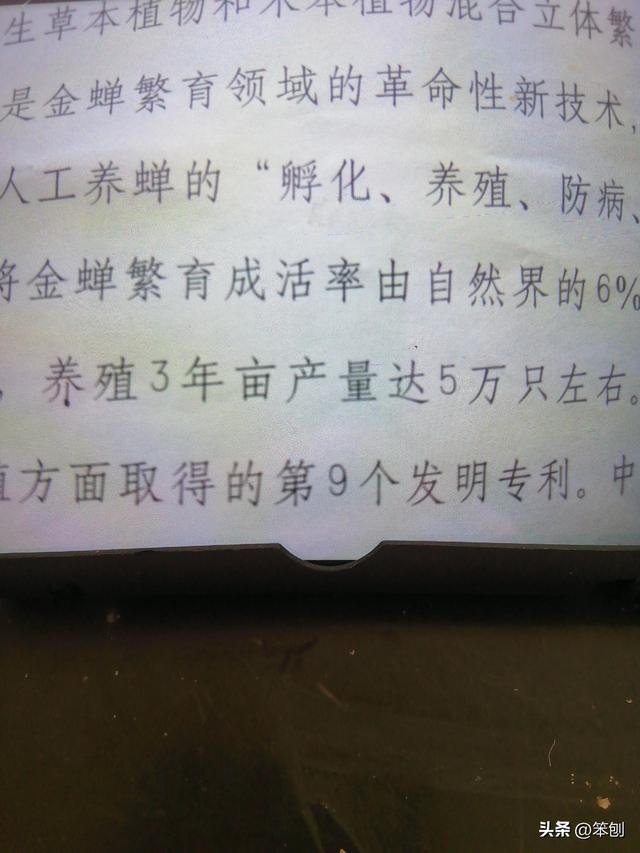 生草本植物和木本植物混合立体繁
是金蝉繁育领域的革命性新技术,
人工养蝉的“孵化、养殖、防病、
将金蝉繁育成活率由自然界的6%
，养殖3年亩产量达5万只左右。
殖方面取得的第9个发明专利。中
头条 @笨刨